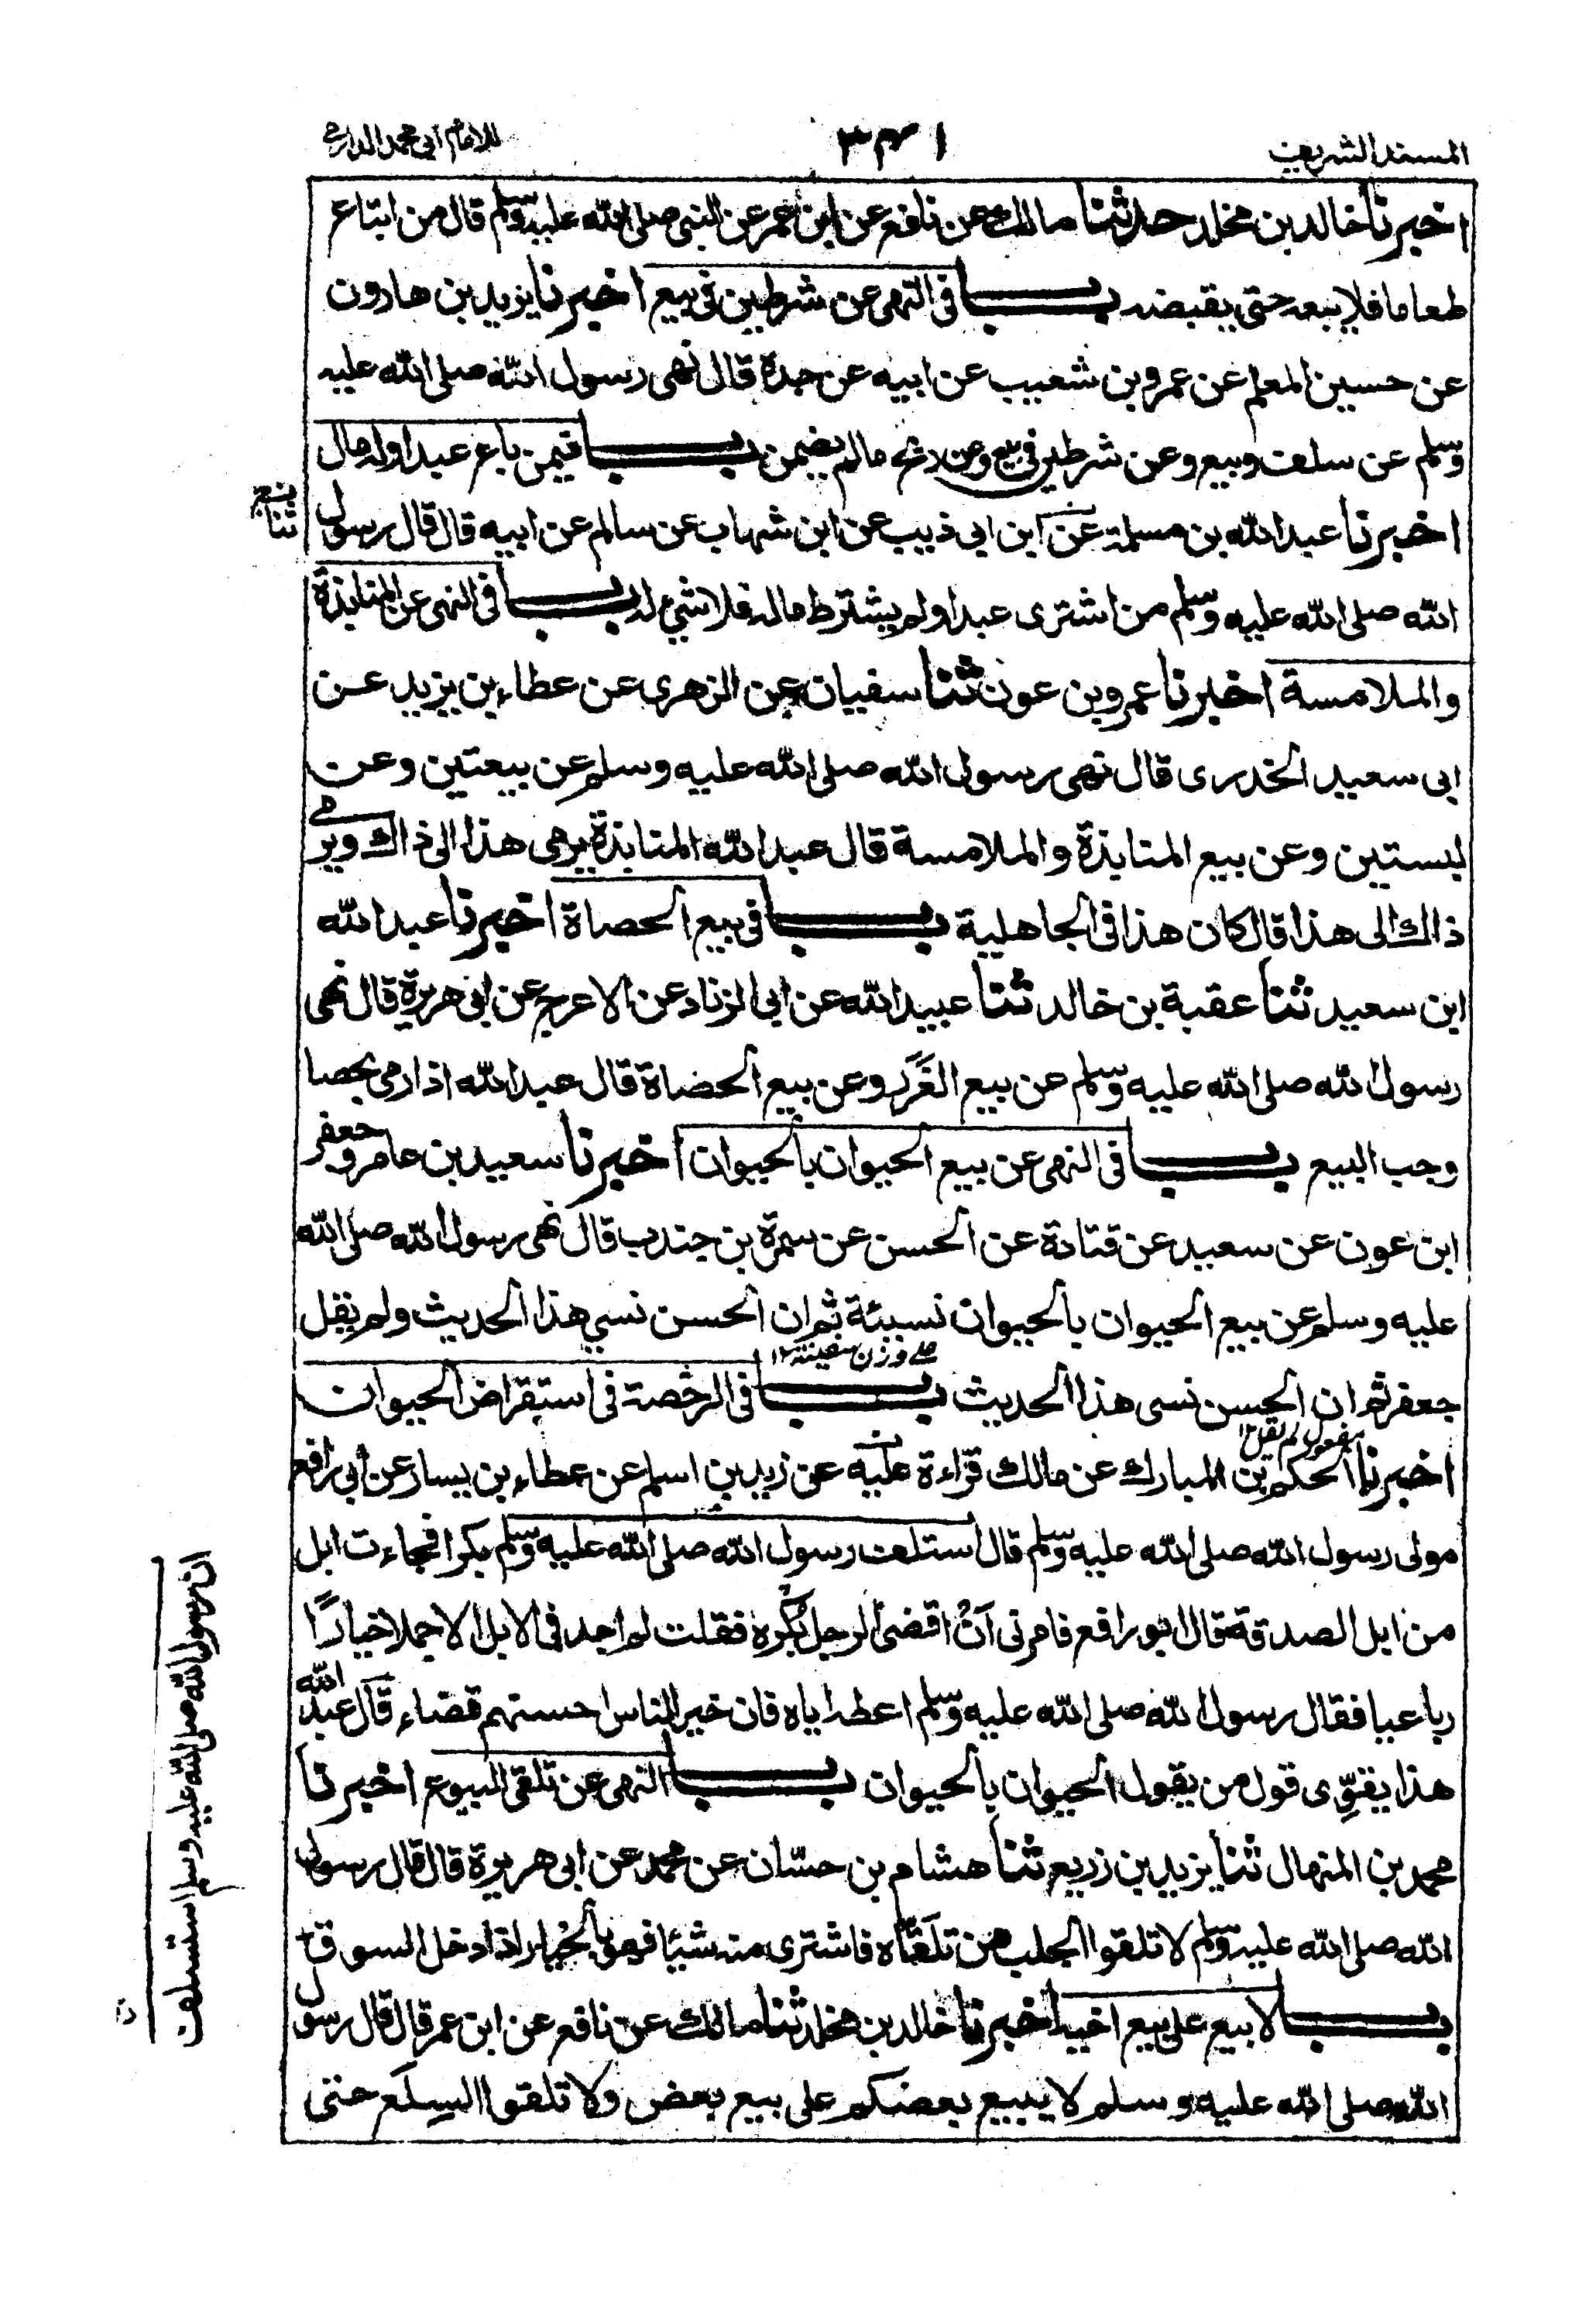 المسند الشريف
٣٤١
للامام ابی محمد الدارمی
اخبرنا خالد بن مخلد حدثنا مالك عن نافع عن ابن عمر عن النبی صلی الله علیه وسلم قال من ابتاع
طعاما فلا يبعه حتی يقبضه باب فی النهی عن شرطين فی بيع اخبرنا يزيد بن هارون
عن حسين المعلم عن عمرو بن شعيب عن ابيه عن جدة قال نهی رسول الله صلی الله عليه
وسلم عن سلف وبيع وعن شرطين فی بيع وعن ربح مالم يضمن باب فيمن باع عبدا وله مال
اخبرنا عبد الله بن مسلمة عن ابن ابی ذيب عن ابن شهاب عن سالم عن ابيه قال قال رسول
ثنا
الله صلی الله عليه وسلم من اشتری عبدا ولم يشترط ماله فلا شیء له باب فی النهی عن المنابذة
والملامسة اخبرنا عمرو بن عون ثنا سفيان عن الزهری عن عطاء بن يزيد عن
ابی سعيد الخدری قال نهی رسول الله صلی الله عليه وسلم عن بيعتين وعن
لبستين وعن بيع المنابذة والملامسة قال عبد الله المنابذة يرمی هذا الی ذاك ويرمی
ذاك الی هذا قال كان هذا فی الجاهلية باب فی بيع الحصاة اخبرنا عبد الله
ابن سعيد ثنا عقبة بن خالد ثنا عبيد الله عن ابی الزناد عن الاعرج عن ابی هريرة قال نهی
رسول الله صلی الله عليه وسلم عن بيع الغَرَر وعن بيع الحصاة قال عبد الله اذا رمی بحصا
وجب البيع باب فی النهی عن بيع الحيوان بالحيوان اخبرنا سعيد بن عامر وجعفر
ابن عون عن سعيد عن قتادة عن الحسن عن سمرة بن جندب قال نهی رسول الله صلی الله
عليه وسلم عن بيع الحيوان بالحيوان نسيئة ثم ان الحسن نسی هذا الحديث ولم يقل
علی وزن سفينة ١٢
جعفر ثم ان الحسن نسی هذا الحديث باب فی الرخصة فی استقراض الحيوان
مفعول لم يقل ١٢
اخبرنا الحكم بن المبارك عن مالك قراءة عليه عن زيد بن اسلم عن عطاء بن يسار عن ابی رافع
مولی رسول الله صلی الله عليه وسلم قال استلف رسول الله صلی الله عليه وسلم بكرا فجاءت ابل
من ابل الصدقة قال ابو رافع فامرنی اَنْ اقضی الرجل بَكْره فقلت لم اجد فی الابل الا جملا خيارًا
رباعيا فقال رسول الله صلی الله عليه وسلم اعطه اياه فان خير الناس احسنهم قضاء قال عبد الله
هذا يقوِّی قول من يقول الحيوان بالحيوان باب النهی عن تلقی البيوع اخبرنا
محمد بن المنهال ثنا يزيد بن زريع ثنا هشام بن حسّان عن محمد عن ابی هريرة قال قال رسول
الله صلی الله عليه وسلم لا تلقوا الجلب من تلَقّاه فاشتری منه شيئا فهو بالخيار اذا دخل السوق
باب لا يبيع علی بيع اخيه اخبرنا خالد بن مخلد ثنا مالك عن نافع عن ابن عمر قال قال رسول
الله صلی الله عليه وسلم لا يبيع بعضكم علی بيع بعض ولا تلقوا السِلَع حتی
ان رسول الله صلی الله عليه وسلم استسلف